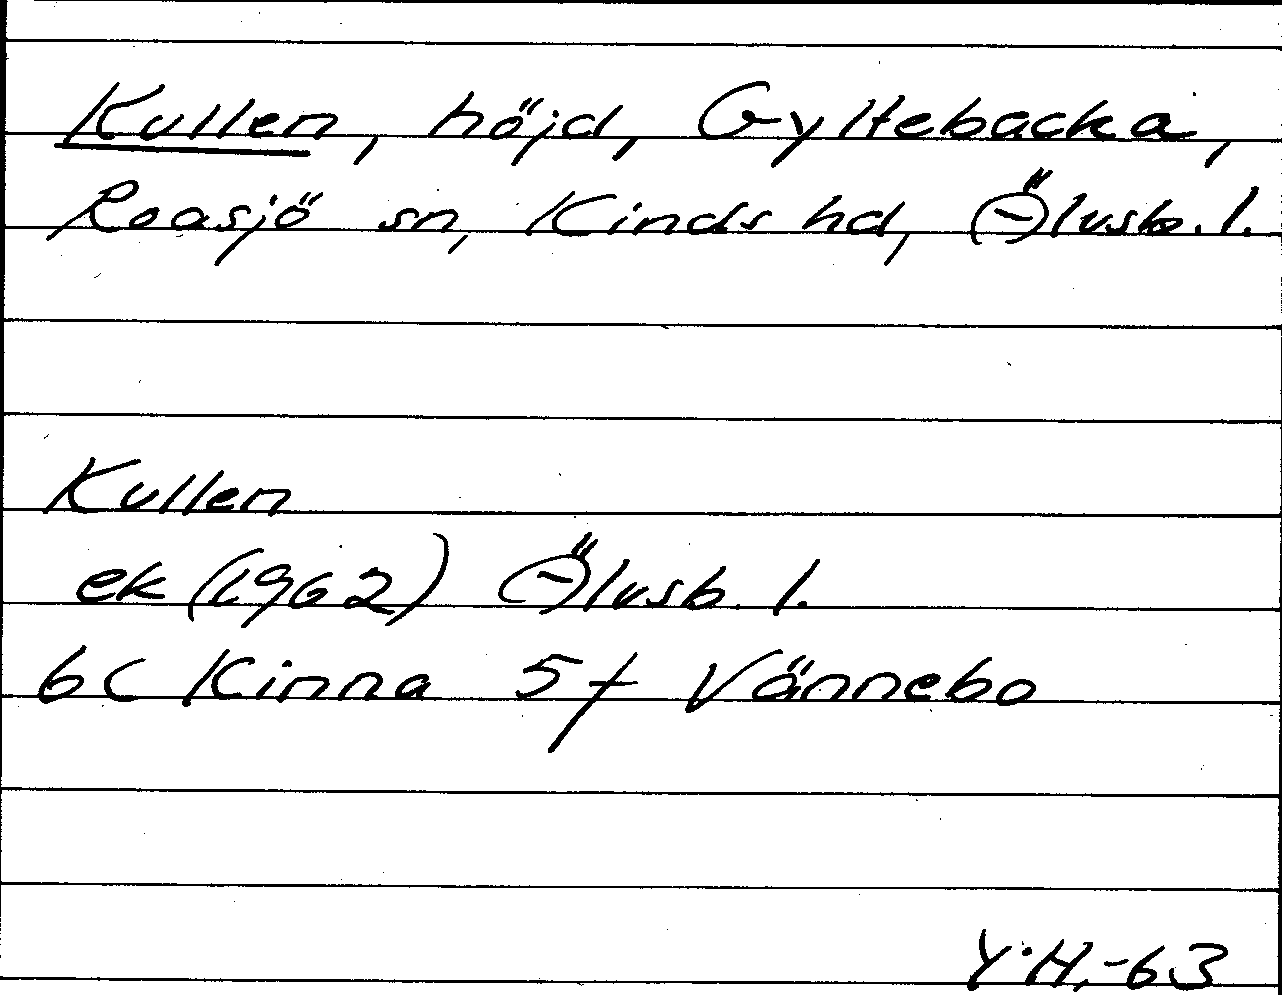 Kullen, höjd, Gyltebacka,
Roasjö sn, Kinds hd, Älvsb. l.
Kullen
ek (1962) Älvsb. l.
6C Kinna 5f Vännebo
Y.H.-63